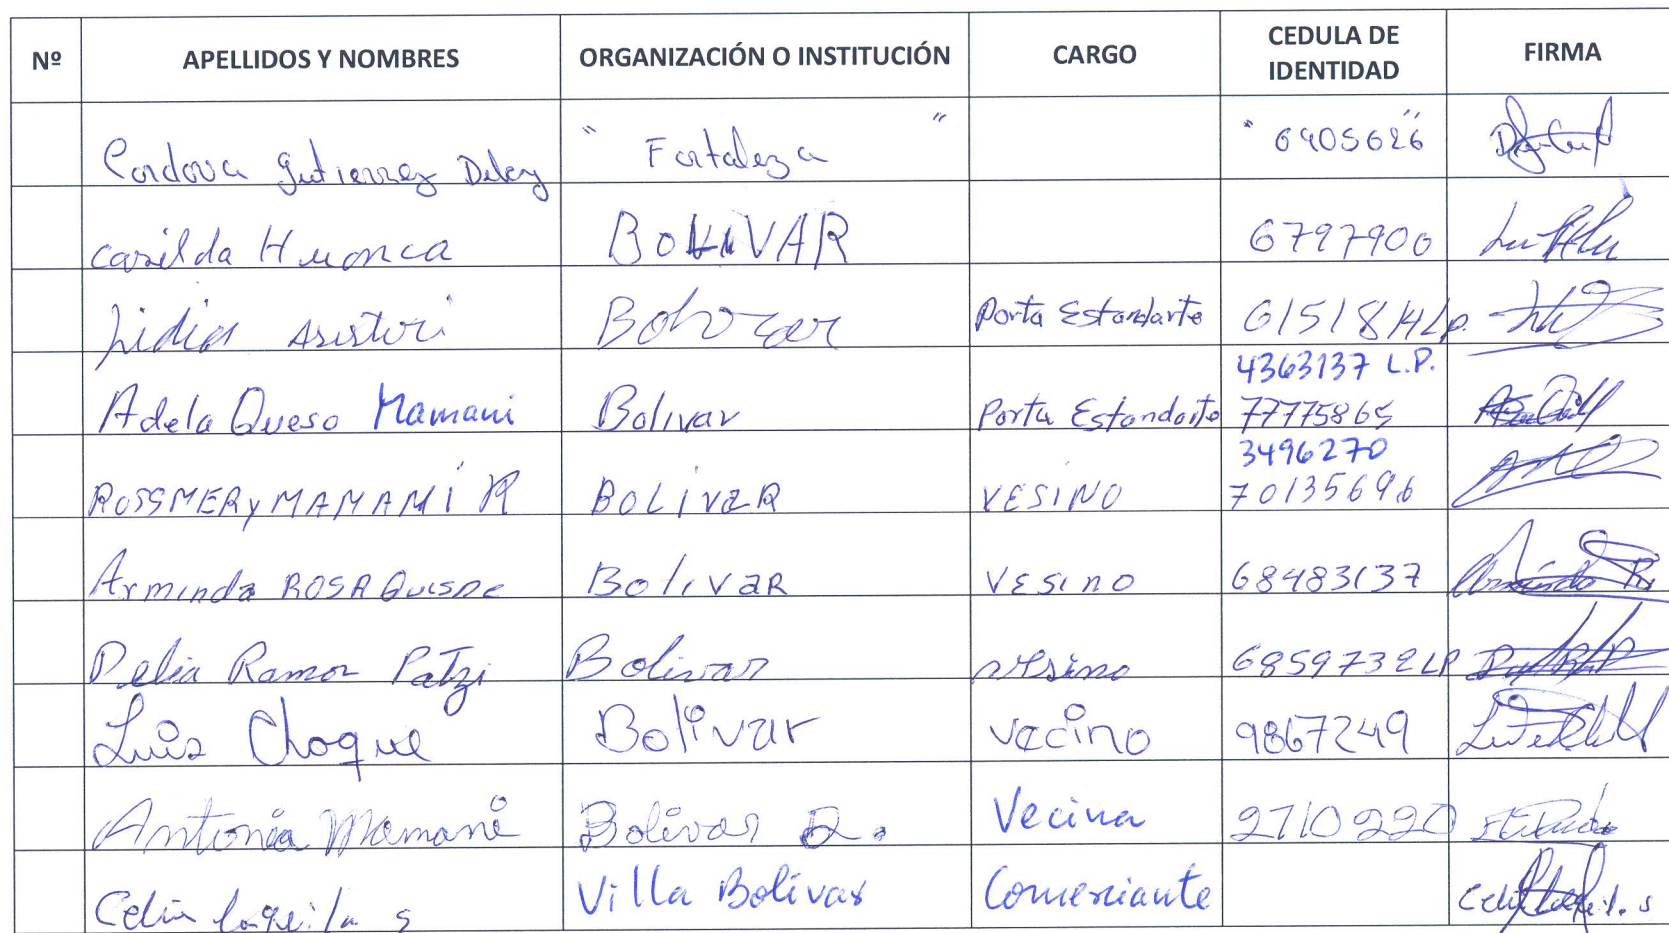 Nº APELLIDOS Y NOMBRES ORGANIZACIÓN O INSTITUCIÓN CARGO CEDULA DE IDENTIDAD FIRMA
Cordova Gutierrez Delcy " Fortaleza " " 6905626 "
Casilda Huanca BOLIVAR 6797900
Lidia Bolivar Porta Estandarte 615181 H Lp.
Adela Queso Mamani Bolivar Porta Estandarte 4363137 L.P.
77775865
ROSSMERY MAMANI R BOLIVAR VESINO 3496270
70135696
Arminda ROSA Quispe Bolivar VESINO 68483137
Delia Ramos Patzi Bolivar vesino 6859732 LP
Luis Choque Bolivar vecino 9867249
Antonia Mamani Bolivar D. Vecina 2710220
Celia s Villa Bolivar Comerciante